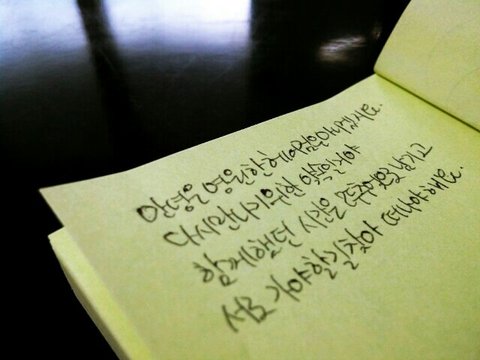 안녕은 영원한 헤어짐은 아니겠지요.
다시 만나기 위한 약속일 거야
함께 했던 시간은 추억으로 남기고
서로 가야할 길 찾아 떠나야 해요.